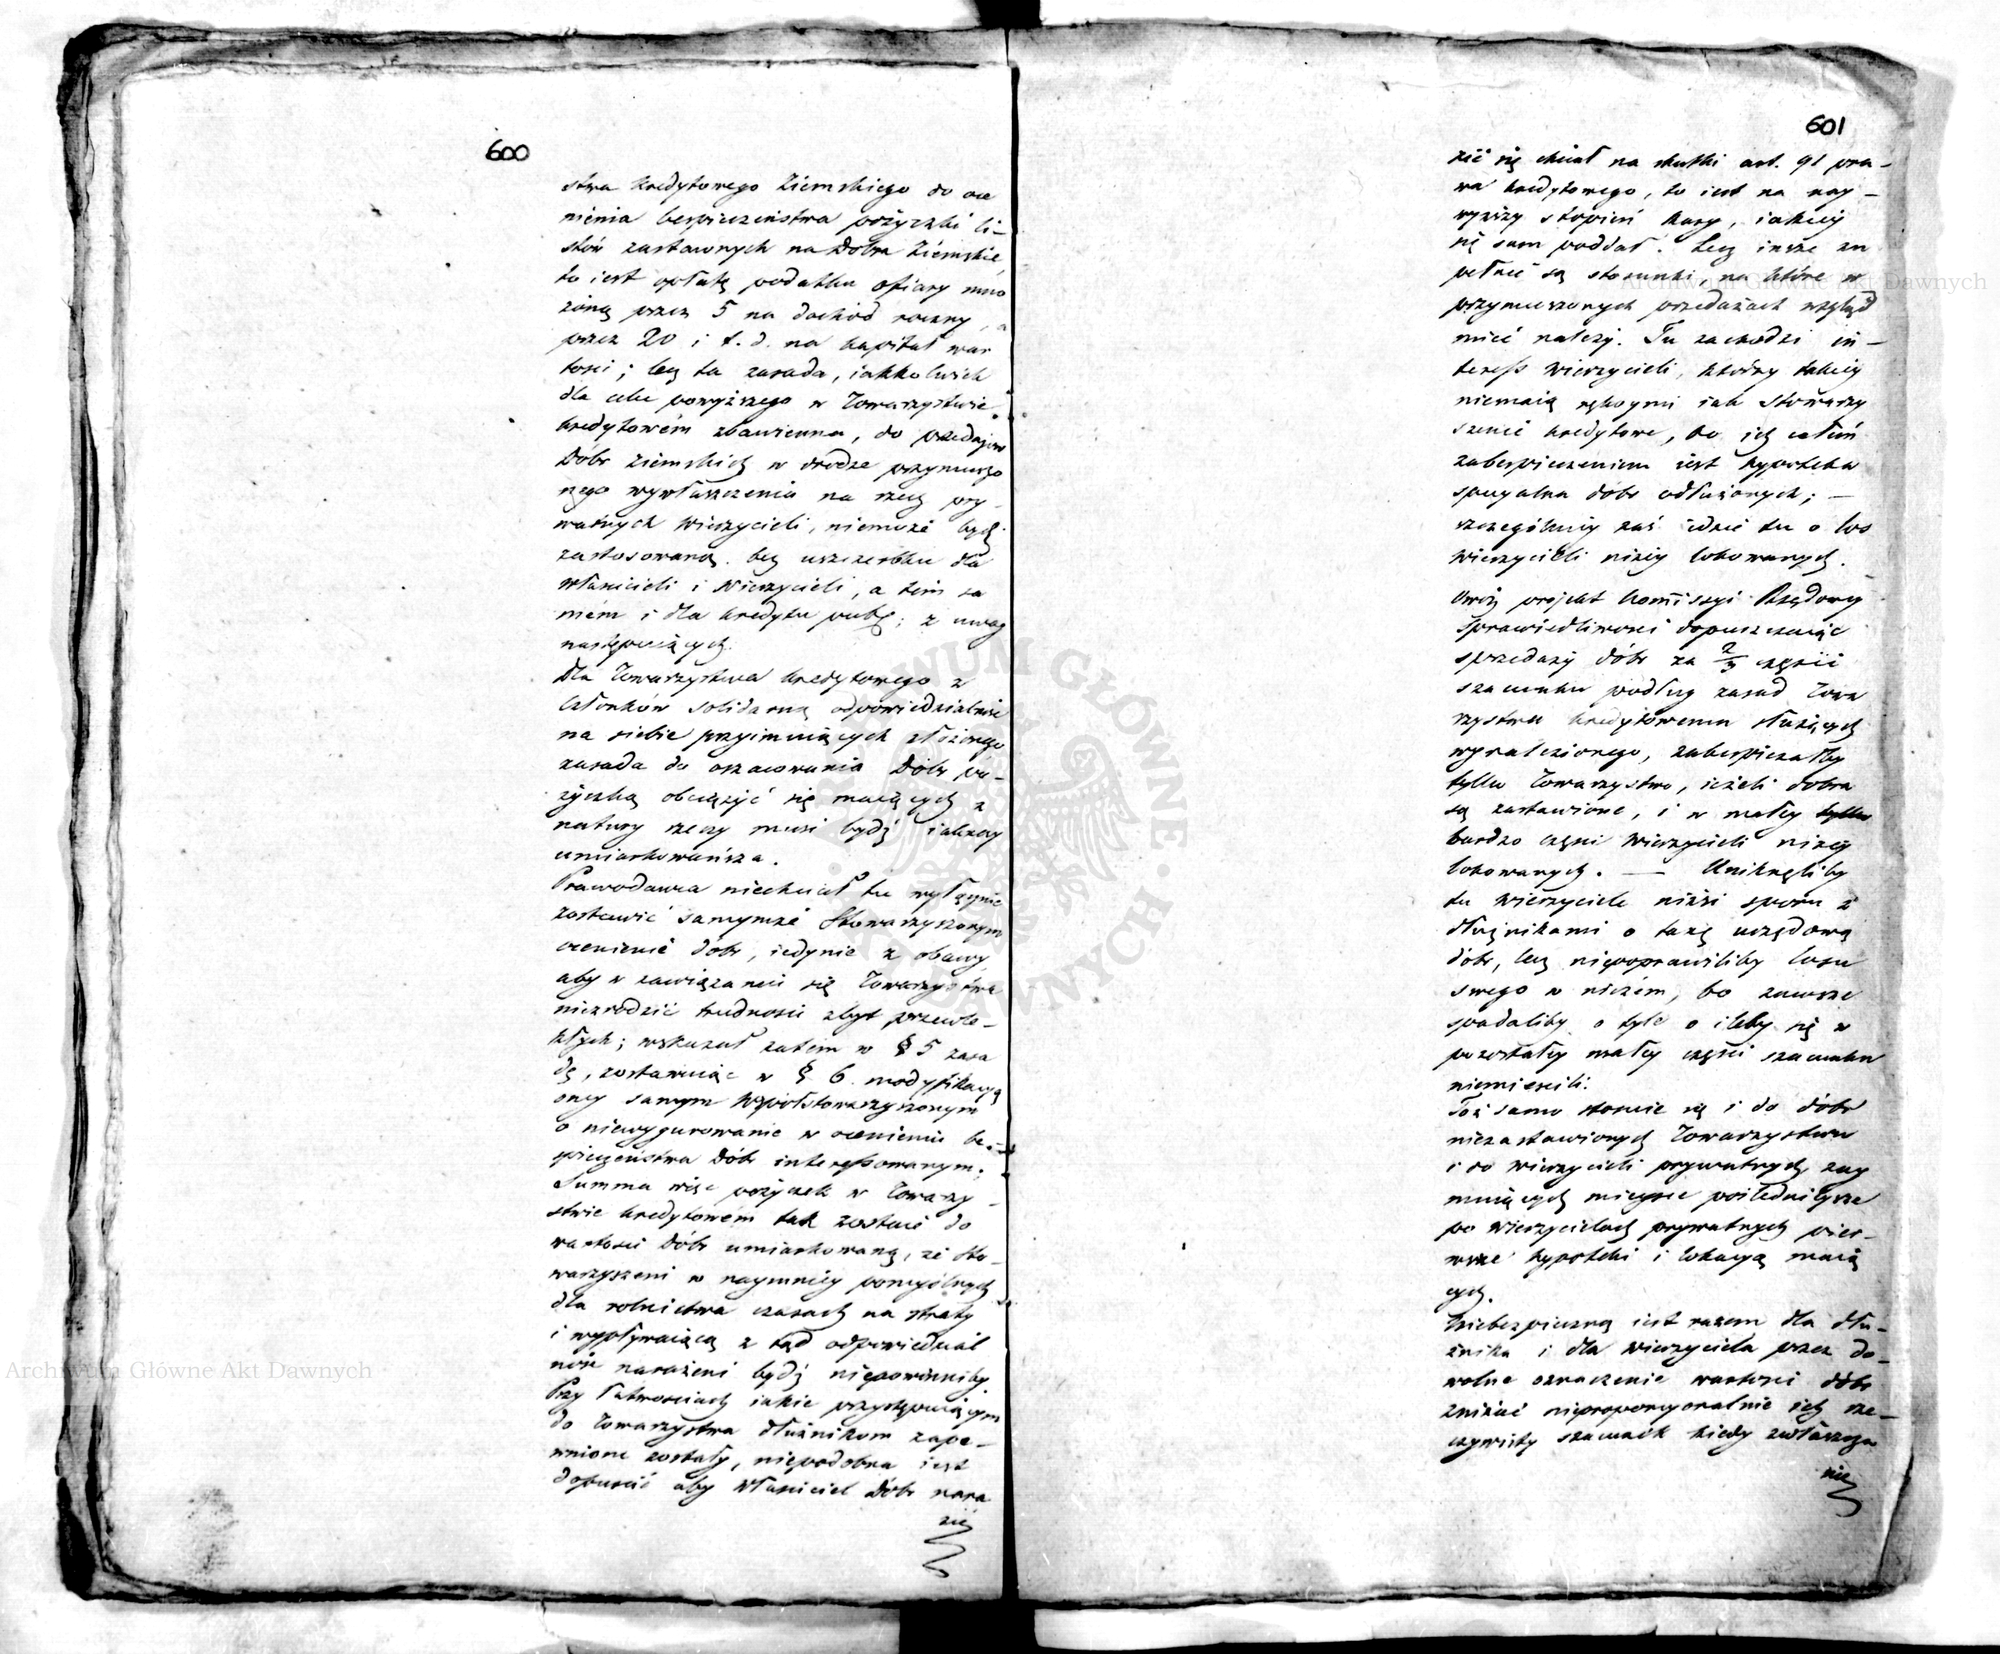 600
stwa kredytowego Ziemskiego do oce
nienia bespieczeństwa pożyczki li-
stów zastawnych na Dobra Ziemskie,
to iest opłatę podatku ofiary mno
żoną przez 5 na dochód roczny, a
przez 20 i t. d. na kapitał war
tości; lecz ta zasada, iakkolwiek
dla celu powyższego w Towarzystwie
kredytowém zbawienna, do przedaży
Dóbr Ziemskich w drodze przymuszo
nego wywłaszczenia na rzecz pry-
watnych Wierzycieli, niemoże bydź
zastosowaną bez uszczerbku dla
Właścicieli i Wierzycieli, a tém sa
mém i dla kredytu publ; z uwag
następuiących.
Dla Towarzystwa kredytowego z
Członków solidarną odpowiedzialność
na siebie przyimuiących złożonego
zasada do oszacowania Dóbr po-
życzką obciążyć się maiących z
natury rzeczy musi bydź
umiarkowańsza.
Prawodawca niechciał tu wyłącznie
zostawić samymże Stowarzyszonym
ocenienie dóbr, iedynie z obawy
aby w zawiązaniu się Towarzystwa
niezrodzić trudności zbyt przewle-
kłych; wskazał zatem w § 5 zasa
dę, zostawuiąc w § 6 modyfikacyą
oney samym Współstowarzyszonym
o niewygurowanie w ocenieniu be-
spieczeństwa Dóbr interessowanym.
Summa więc pożyczek w Towarzy
stwie kredytowém tak zostaie do
wartości Dóbr umiarkowaną, że sto-
warzyszeni w naymniey pomyślnych
dla rolnictwa czasach na straty
i wypływaiącą z tąd odpowiedzial
ność narażeni bydź niepowinniby.
Przy łatwościach iakie przystępuiącym
do Towarzystwa dłużnikom zape-
wnione zostały, niepodobna iest
dopuścić aby Właściciel Dóbr nara
zić
601
zić się chciał na skutki art. 91 pra-
wa kredytowego, to iest na nay-
wyższy stopień kary, iakiey
się sam poddał. Lecz insze zu
pełnie są stosunki na które w
przymuszonych przedażach wzgląd
mieć należy. Tu zachodzi in-
teress Wierzycieli, którzy takiey
niemaią rękoymi iak Stowarzy
szenie kredytowe, bo ich całém
zabespieczeniem iest hypoteka
specyalna dóbr odłużonych; —
szczególniey zaś idzie tu o los
Wierzycieli niżey lokowanych.
Owóż projekt Kommissyi Rządowey
Sprawiedliwości dopuszczaiąc
sprzedaży dóbr za 2/3 części
szacunku podług zasad Towa
rzystwu kredytowemu służących
wynalezionego, zabespieczałby
tylko Towarzystwo, ieżeli dobra
są zastawione, i w małey tylko
bardzo części Wierzycieli niżey
lokowanych. — Uniknęliby
tu Wierzyciele niżsi sporu z
dłużnikami o taxę urzędową
dóbr, lecz niepoprawiliby losu
swego w niczém, bo zawsze
spadaliby o tyle o ileby się w
pozostałey małey części szacunku
niemieścili.
Toż samo stosuie się i do dóbr
niezastawionych Towarzystwu
i do Wierzycieli prywatnych zay
muiących mieysce poślednieysze
po Wierzycielach prywatnych pier-
wsze hypoteki i lokacyą maią
cych.
Niebezpieczną iest razem dla dłu-
żnika i dla wierzyciela przez do-
wolne oznaczenie wartości dóbr
zniżać nieproporcyonalnie ich rze-
czywisty szacunek kiedy zwłaszcza
nie
Archiwum Główne Akt Dawnych
Archiwum Główne Akt Dawnych
ARCHIWUM GŁÓWNE AKT DAWNYCH